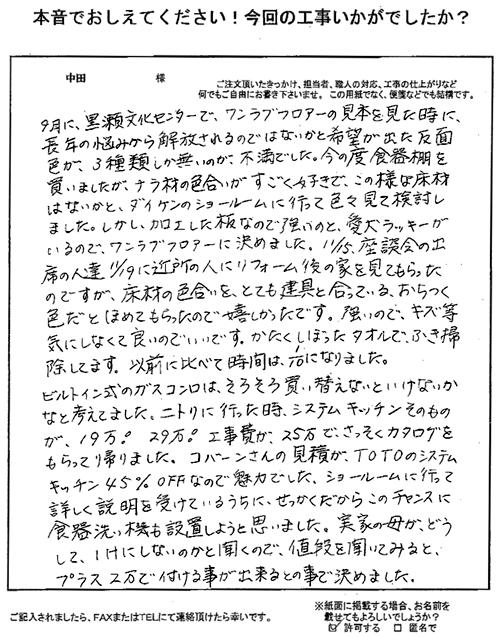 本音でおしえてください！今回の工事いかがでしたか？
中田　　　様
ご注文頂いたきっかけ、担当者、職人の対応、工事の仕上がりなど
何でもご自由にお書き下さいませ。この用紙でなく、便箋などでも結構です。
9月に、黒瀬文化センターで、ワンラブフロアーの見本を見た時に、
長年の悩みから解放されるのではないかと希望が出た反面
色が、3種類しか無いのが、不満でした。今の度食器棚を
買いましたが、ナラ材の色合いがすごく好きで、この様な床材
はないかと、ダイケンのショールームに行って色々見て検討し
ました。しかし、加工した板なので強いのと、愛犬ラッキーが
いるので、ワンラブフロアーに決めました。11/15、座談会の出
席の人達 11/19に近所の人にリフォーム後の家を見てもらった
のですが、床材の色合いを、とても建具と合っている、おちつく
色だとほめてもらったので嬉しかったです。強いので、キズ等
気にしなくて良いのでいいです。かたくしぼったタオルで、ふき掃
除してます。以前に比べて時間は、になりました。
ビルトイン式のガスコンロは、そろそろ買い替えないといけないか
なと考えてました。ニトリに行った時、システムキッチンそのもの
が、19万。29万。工事費が、25万で、さっそくカタログを
もらって帰りました。コバーンさんの見積が、TOTOのシステム
キッチン45%OFFなので魅力でした、ショールームに行って
詳しく説明を受けているうちに、せっかくだからこのチャンスに
食器洗い機も設置しようと思いました。実家の母が、どう
して、IHにしないのかと聞くので、値段を聞いてみると、
プラス2万で付ける事が出来るとの事で決めました。
ご記入されましたら、FAXまたはTELにて連絡頂けたら幸いです。
※紙面に掲載する場合、お名前を
載せてもよろしいでしょうか？
☑ 許可する　□ 匿名で